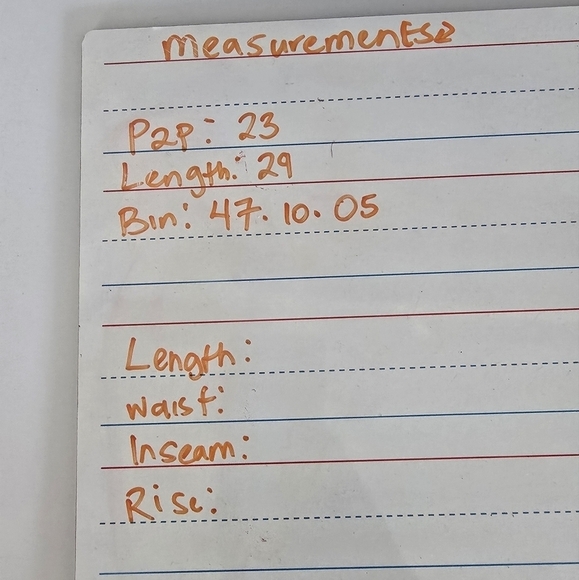 measurements
P2P: 23
Length: 29
Bin: 47. 10. 05
Length:
Waist:
Inseam:
Rise: